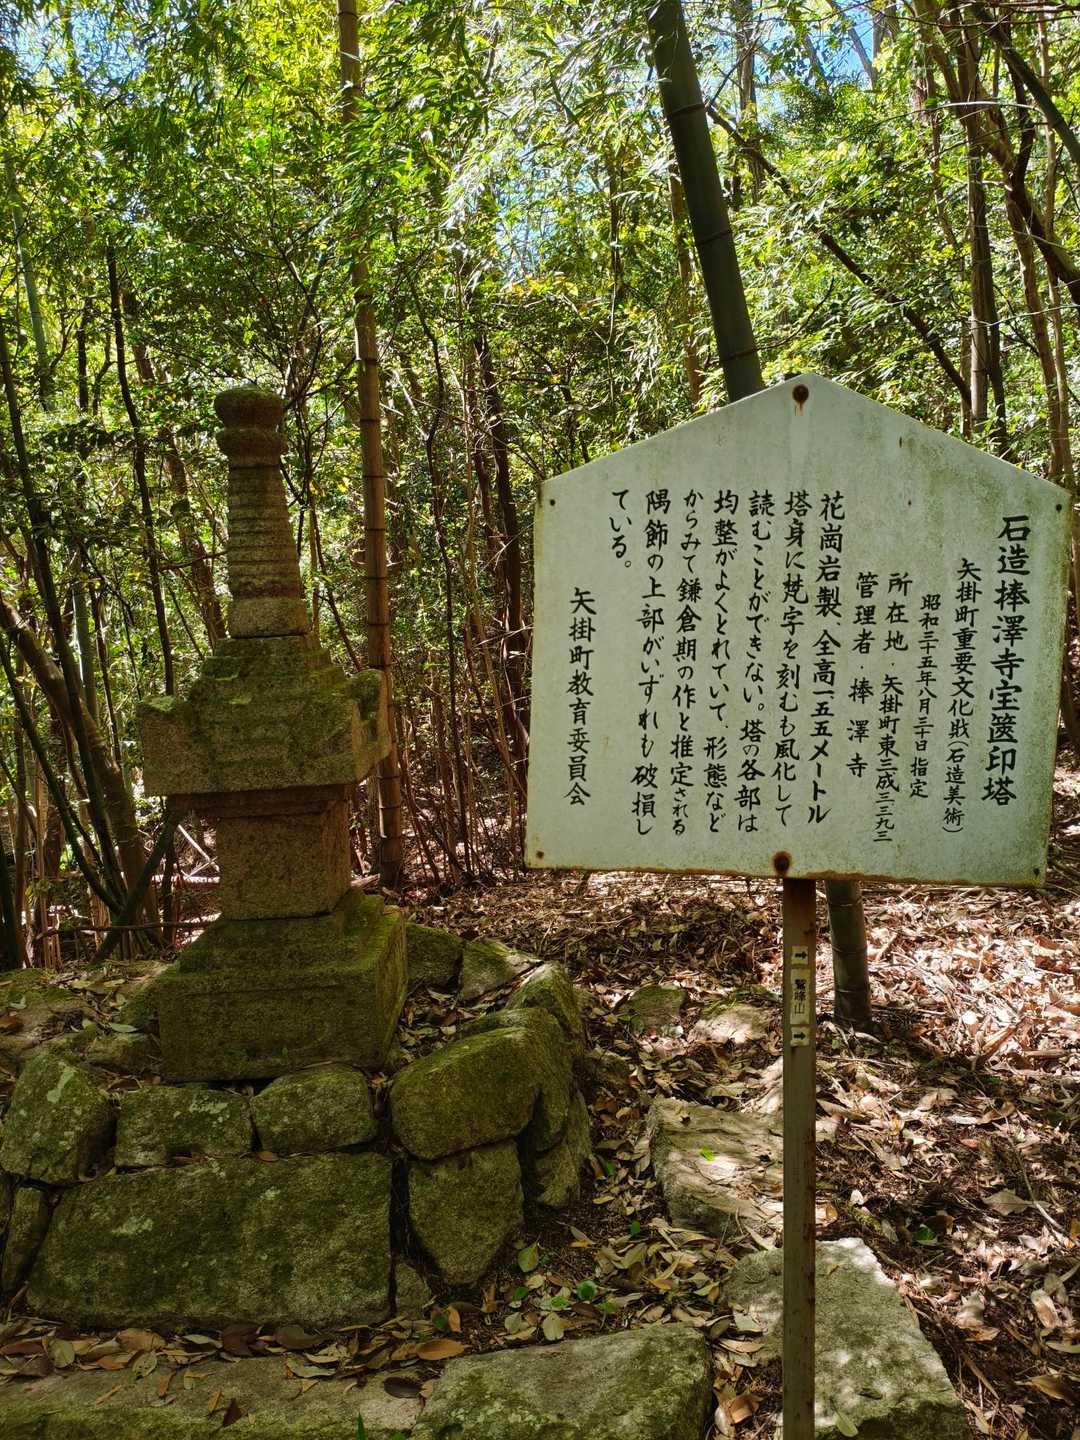 石造捧澤寺宝篋印塔
矢掛町重要文化財(石造美術)
昭和三十五年八月三十日指定
所在地・矢掛町東三成三三九三
管理者・捧澤寺
花崗岩製、全高一五五メートル
塔身に梵字を刻むも風化して
読むことができない。塔の各部は
均整がよくとれていて、形態など
からみて鎌倉期の作と推定される
隅飾の上部がいずれも破損し
ている。
矢掛町教育委員会
→鷲峰山→